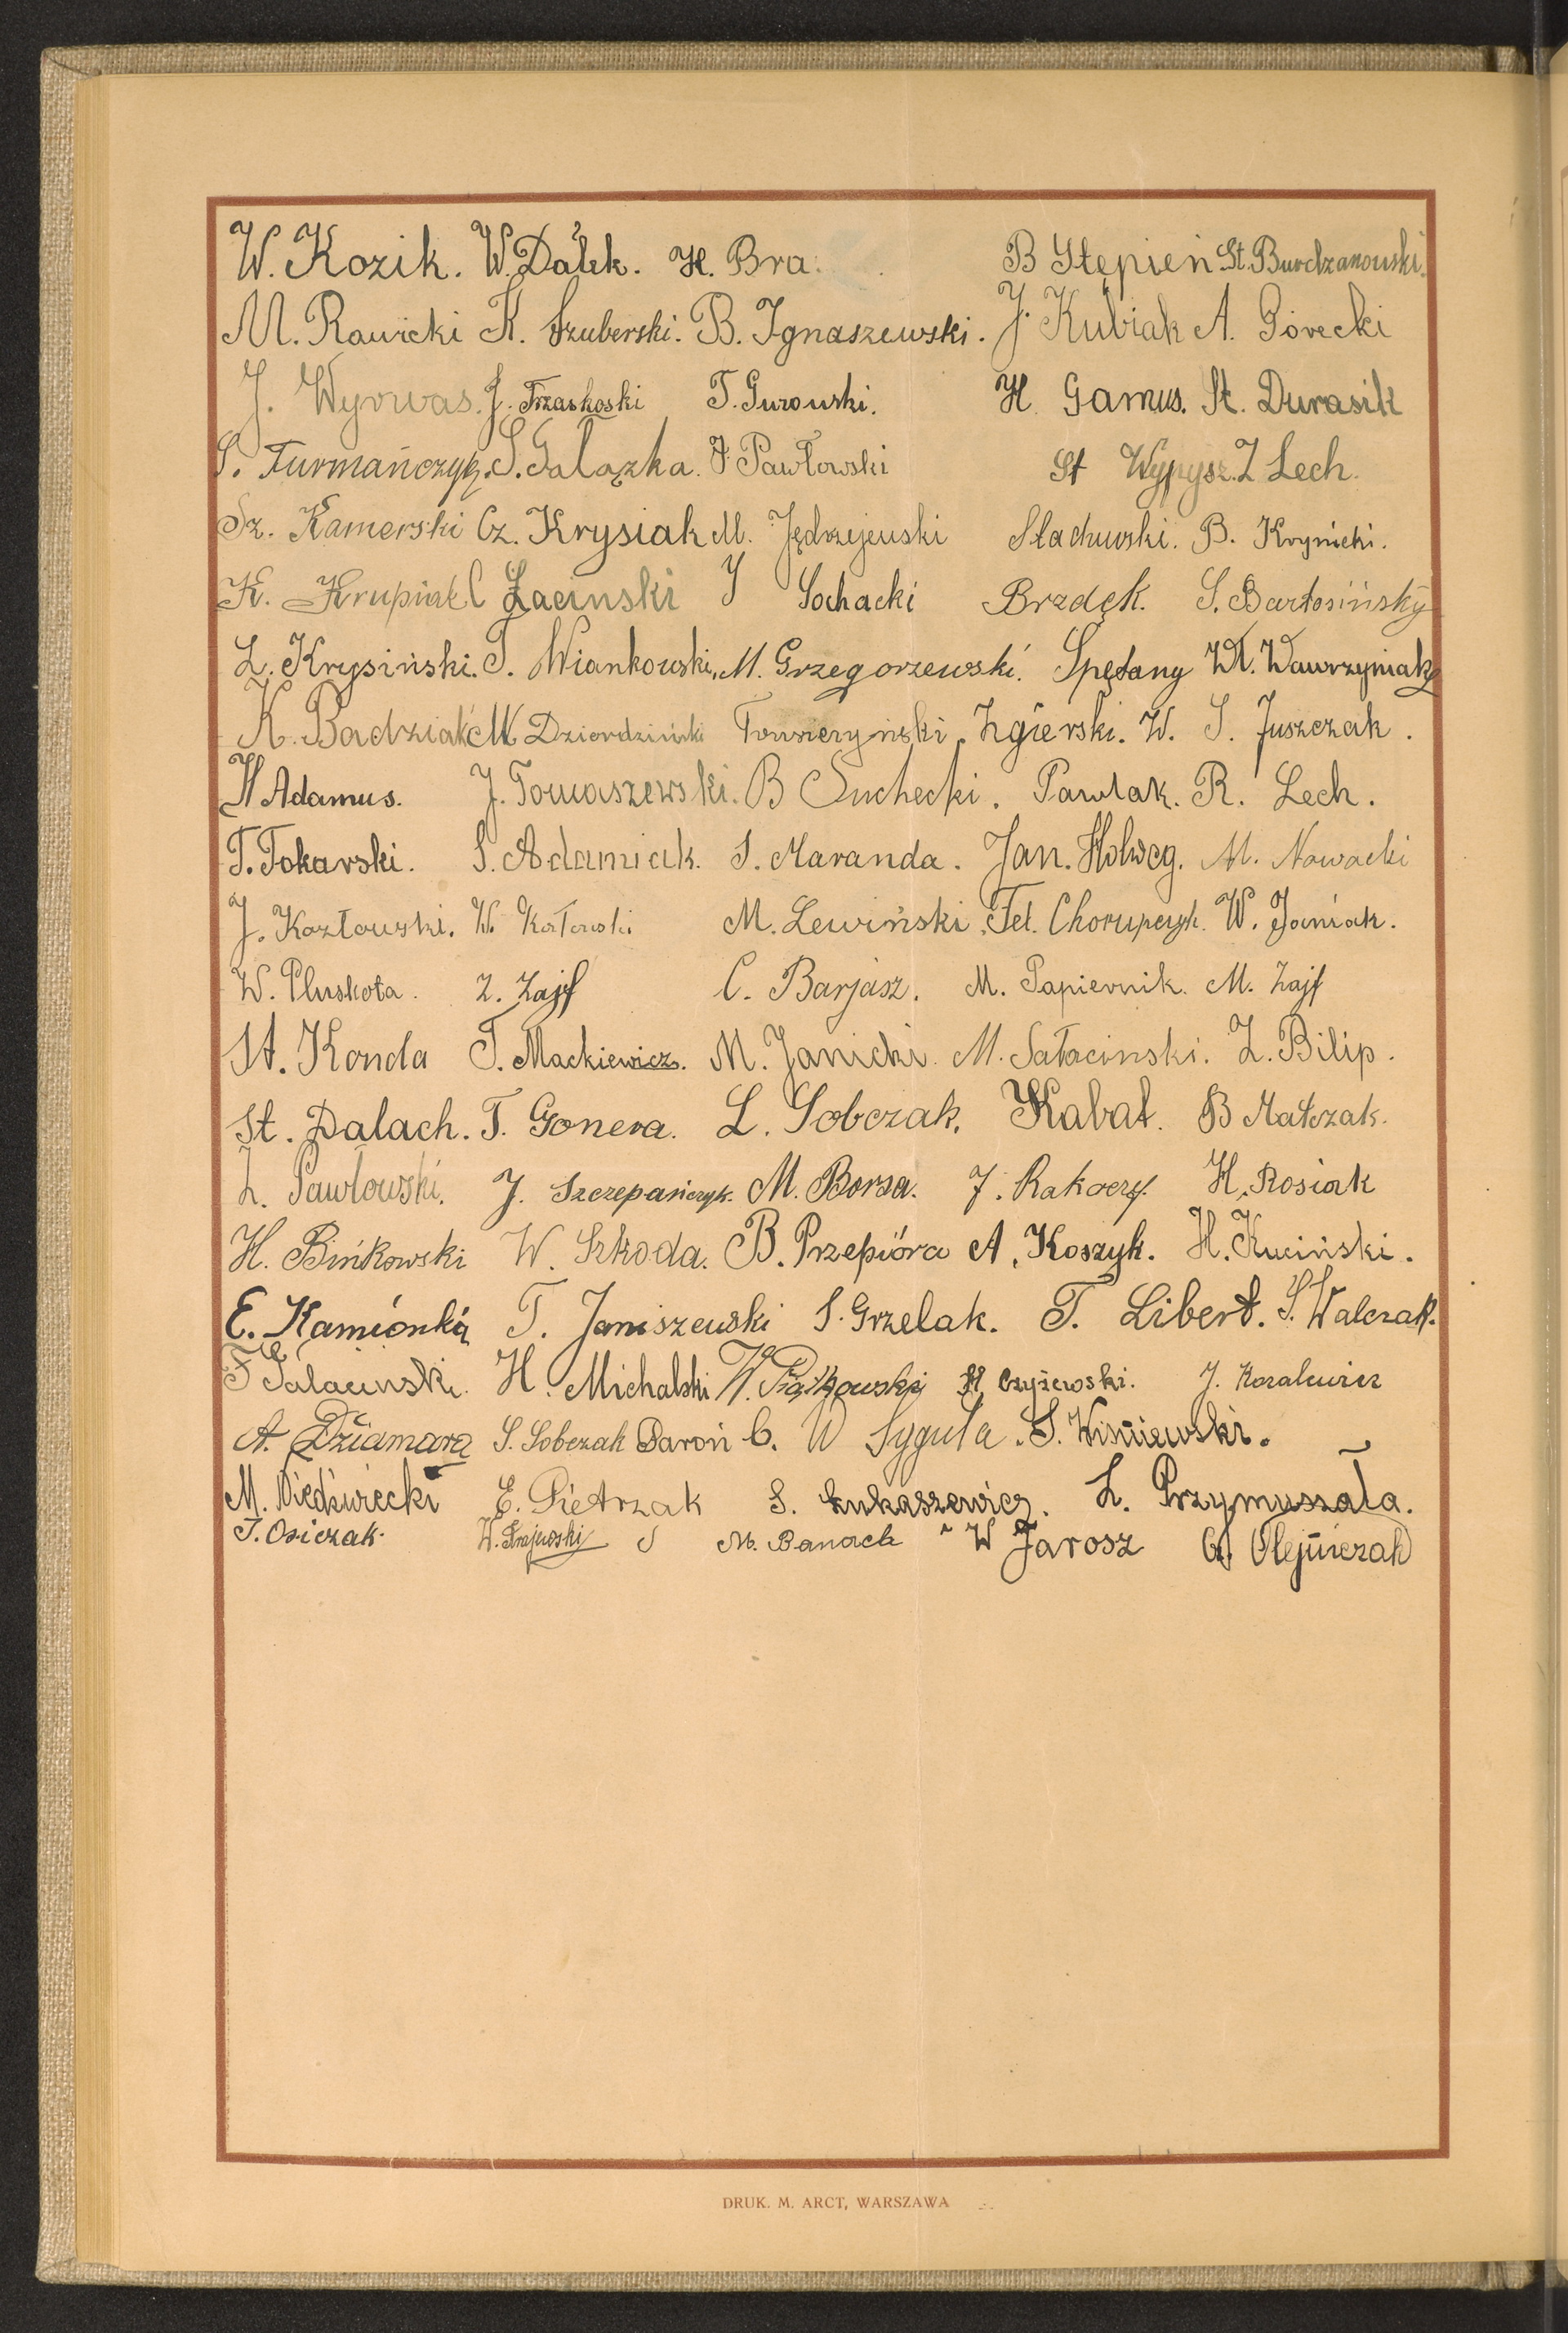 W. Kozik. W. Dałek. H. Bra. B Stępień St. Burdzanowski.
M. Rawicki K. Szuberski. B. Ignaszewski. J. Kubiak A. Górecki
J. Wyrwas. J. Trzaskoski T. Gurowski. H. Gamus. St. Durasik
S. Furmańczyk. S. Galązka. J. Pawłowski St Wypysz. Z Lech.
Sz. Kamerski Cz. Krysiak M. Jędrzejewski Stachurski. B. Krynicki.
K. Krupiak C Łacinski J Sochacki Brzdęk. S. Bartosińsky
L. Krysiński. T. Wiankowski, M. Grzegorzewski. Spętany Wł. Wawrzyniak
K. Badziak M. Dzierdziński Zgierski. W. S. Juszczak.
H Adamus. J. Tomaszewski. B Suchecki. Pawlak. R. Lech.
T. Tokarski. S. Adamiak. S. Maranda. Jan. Holweg. M. Nowacki
J. Kozłowski. W. Kozłowski M. Lewiński. Fel. W. Janiak.
W. Pluskota. Z. Zajf C. Barjasz. M. Papiernik. M. Zajf
St. Konda T. Mackiewicz. M. Janicki. M. Sałacinski. Z. Bilip.
St. Dalach. T. Gonera. L. Sobczak. Kabat. B Matczak.
Z. Pawłowski. J. Szczepańczyk. M. Borsa. J. Rakoczy. H. Rosiak
H. Bińkowski W. Szkoda. B. Przepióra A. Koszyk. H. Kuciński.
E. Kamionka T. Janiszewski S. Grzelak. T. Libert. S. Walczak.
F Salacinski. H. Michalski W. Piątkowski H Czyżewski. J. Kozalewicz
A. Dziamara S. Sobczak Baroń C. W Syguła. S. Wiśniewski.
M. Niedźwiecki E. Pietrzak S. Łukaszewicz. L. Przymuszała.
T. Osiczak. W. Srajwoski S M. Banach W Jarosz G. Olejniczak
DRUK. M. ARCT, WARSZAWA